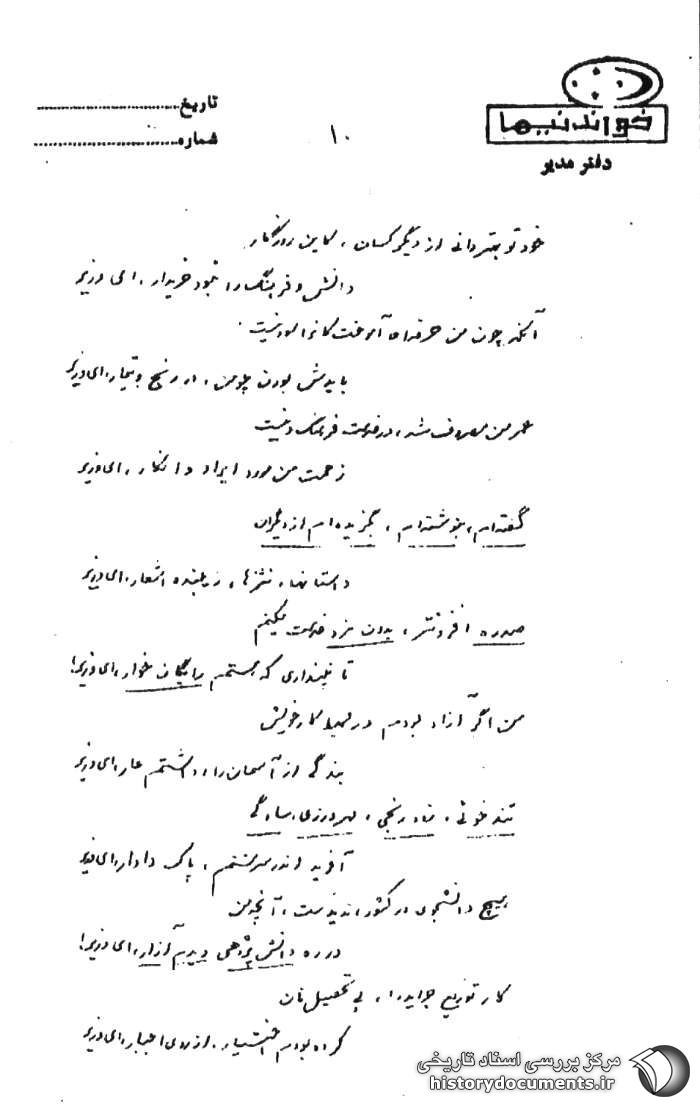 خواندنیها
دفتر مدیر
تاریخ
شماره
۱۰
خود تو بهتر دانی از دیگر کسان، کاین روزگار
دانش و فرهنگ را نبود خریدار، ای وزیر
آنکه چون من حرفه‌ای آموخت کانرا سود نیست
بایدش بودن چو من، در رنج و تیمار، ای وزیر
عمر من مصروف شد، در خدمت فرهنگ و نیست
زحمت من مورد ایراد و انکار، ای وزیر
گفته‌ام، بنوشته‌ام، بگزیده‌ام از دیگران
داستانها، نثرها، زیبنده اشعار، ای وزیر
افزونتر، بدون مزد خدمت میکنم
تا نپنداری که هستم رایگان خوار، ای وزیر!
من اگر آزاد بودم در کار خویش
بندگی از آسمان را، داشتم عار، ای وزیر
تند خوئی، زود رنجی، مهرورزی، سادگی
آفرید اندر سرشتم، پاک دادار، ای وزیر
هیچ دانشجوی در کشور ندیدست، آنچه من
در ره دانش پژوهی دیدم آزار، ای وزیر!
کار توزیع جراید را، پی تحصیل نان
کرده بودم اختیار، از روی اجبار، ای وزیر
مرکز بررسی اسناد تاریخی
historydocuments.ir